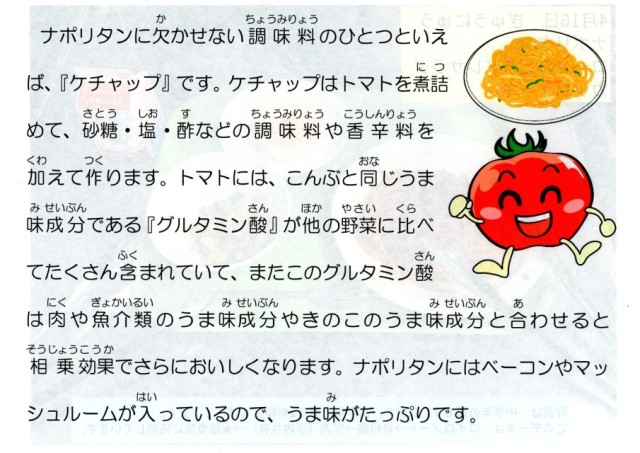 ナポリタンに欠かせない調味料のひとつといえ
ば、『ケチャップ』です。ケチャップはトマトを煮詰
めて、砂糖・塩・酢などの調味料や香辛料を
加えて作ります。トマトには、こんぶと同じうま
味成分である『グルタミン酸』が他の野菜に比べ
てたくさん含まれていて、またこのグルタミン酸
は肉や魚介類のうま味成分やきのこのうま味成分と合わせると
相乗効果でさらにおいしくなります。ナポリタンにはベーコンやマッ
シュルームが入っているので、うま味がたっぷりです。